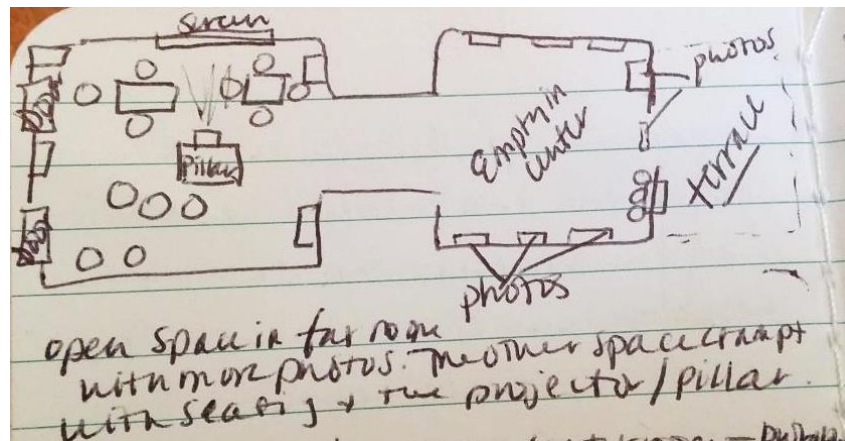 screen
photos
Empty in
center
terrace
Pillar
photos
open space in far room
with more photos. The other space crampt
with seating + the projector/pillar.